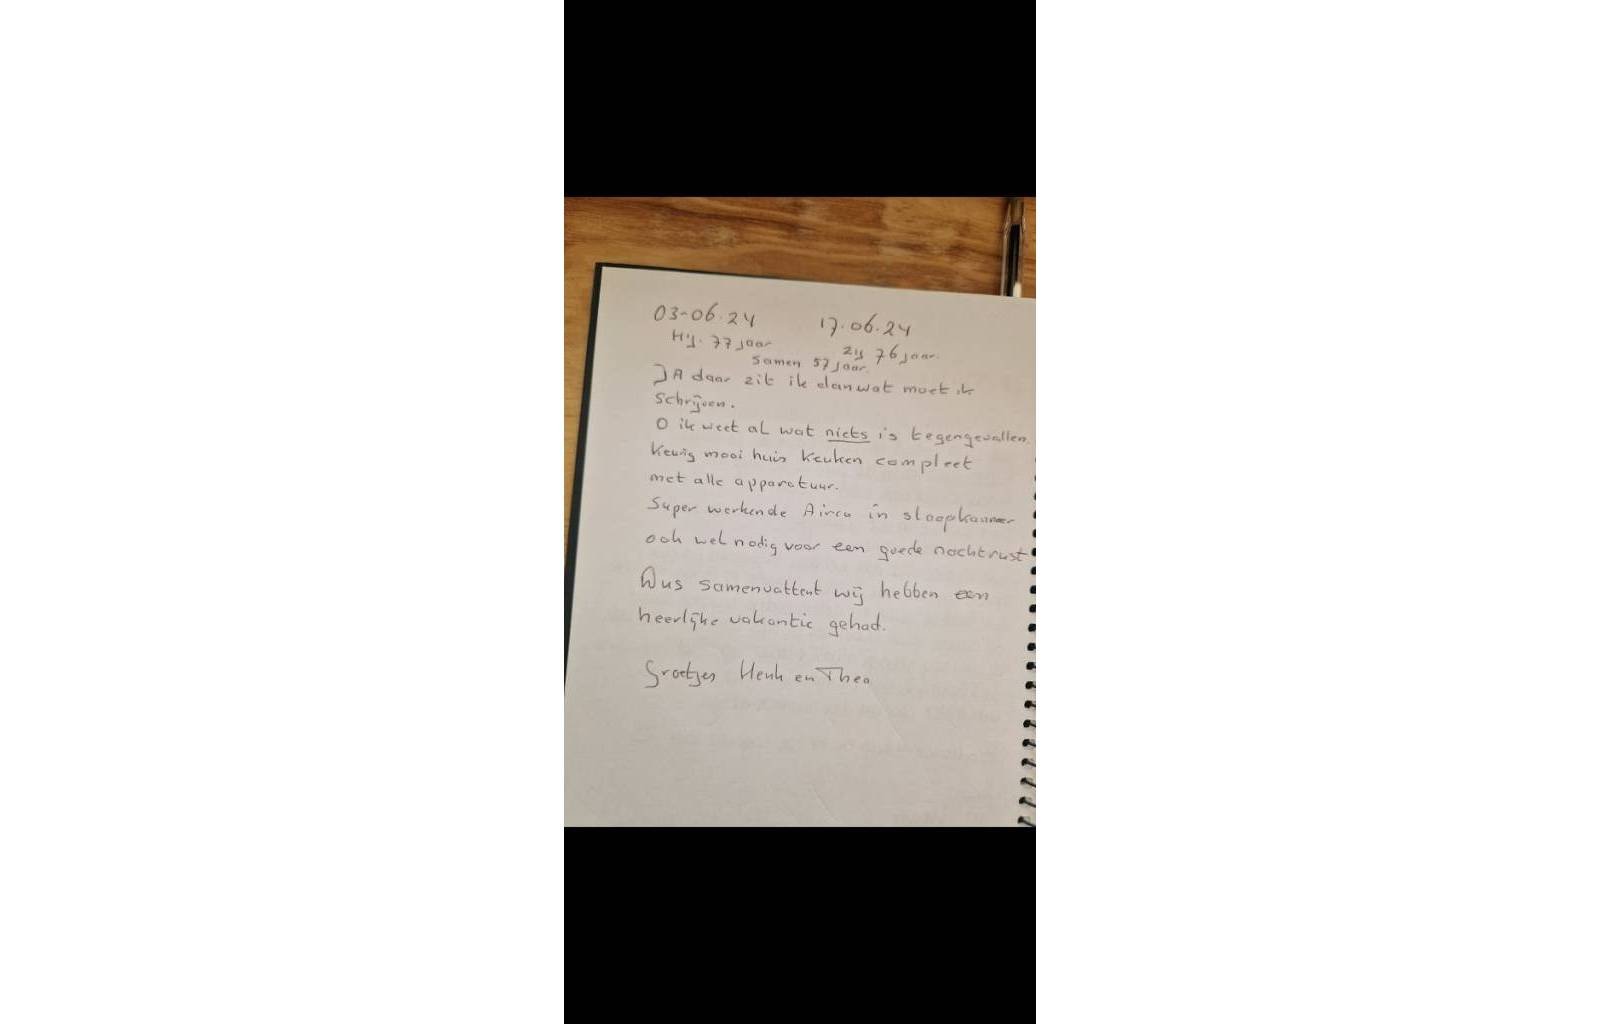 03-06.24 17.06.24
Hij. 77 jaar zij 76 jaar.
Samen 57 jaar.
JA daar zit ik dan wat moet ik
schrijven.
O ik weet al wat niets is tegengevallen.
Keurig mooi huis keuken compleet
met alle apparatuur.
Super werkende Airco in slaapkamer
ook wel nodig voor een goede nachtrust
Dus samenvattent wij hebben een
heerlijke vakantie gehad.
Groetjes Henk en Thea